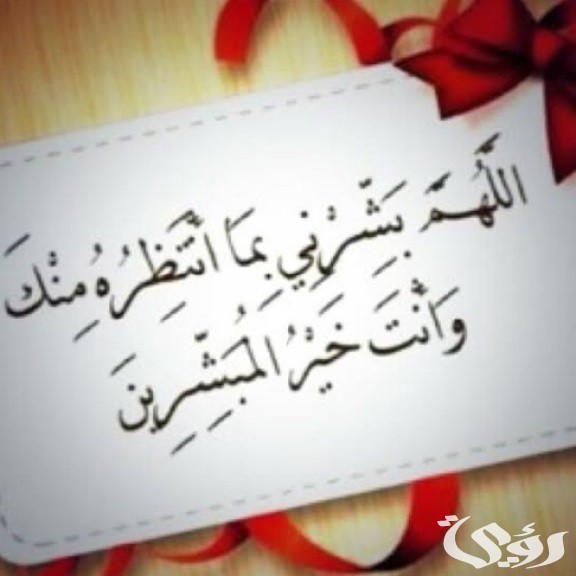 اللَّهُمَّ بَشِّرْنِي بِمَا انْتَظِرُهُ مِنْكَ
وَانْتَ خَيْرُ الْمُبَشِّرِينَ
رؤية